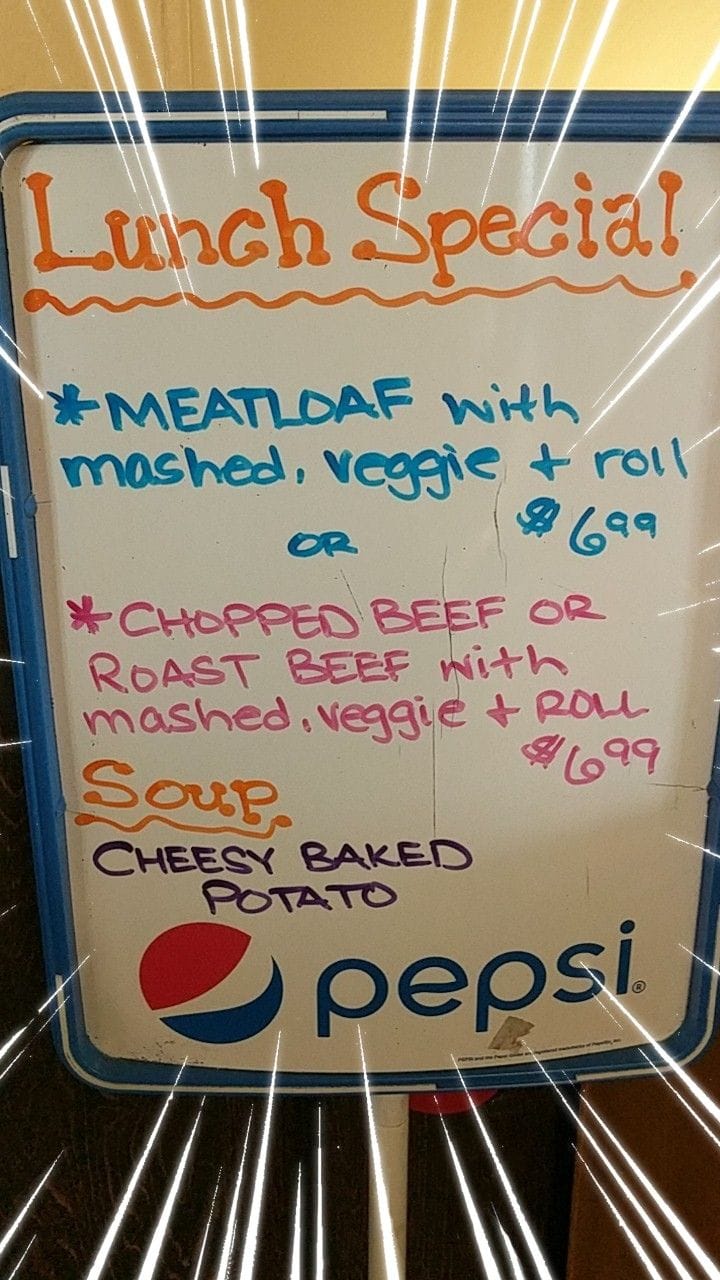 Lunch Special
*MEATLOAF with
mashed, veggie + roll
$6.99
OR
*CHOPPED BEEF OR
ROAST BEEF with
mashed, veggie + ROLL
$6.99
Soup
CHEESY BAKED
POTATO
pepsi®